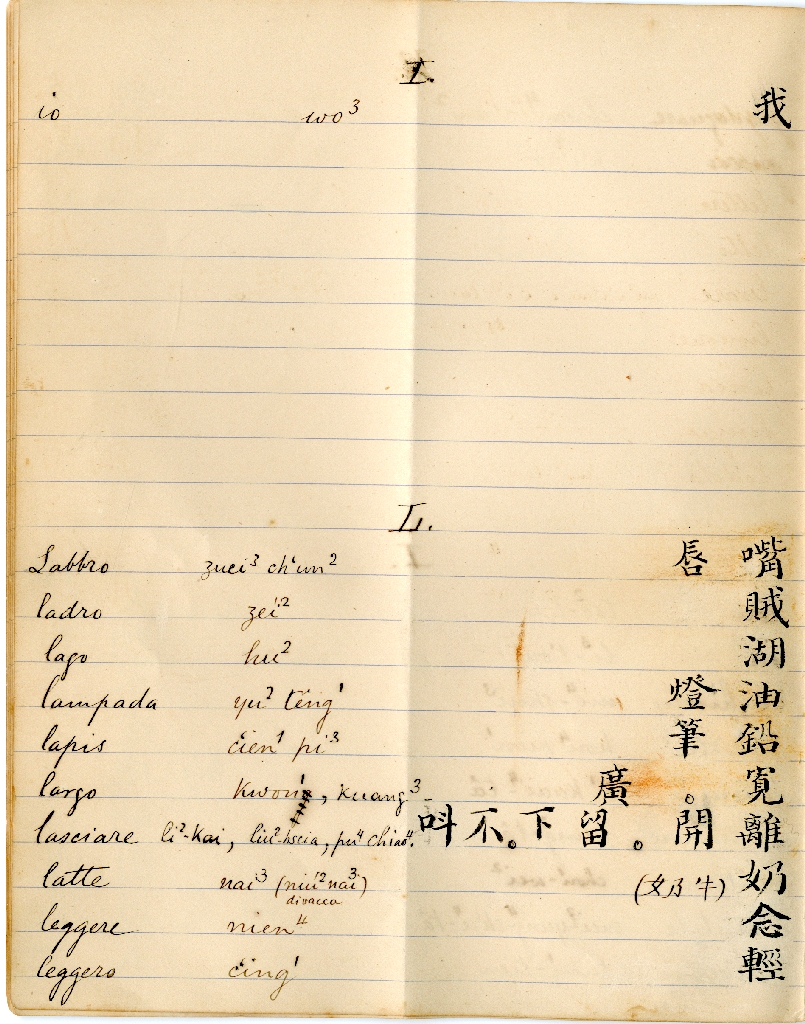 I.
io wo³ 我
L.
Labbro zuei³ ch'un² 嘴唇
ladro zei² 賊
lago hu² 湖
lampada yu² tĕng¹ 油燈
lapis cien¹ pi³ 鉛筆
largo kwon¹, kuang³ 寬。廣
lasciare li²-kai, liu²-hscia, pu⁴ chiao⁴. 離開。留下。不呌
latte nai³ (niu²nai³) 奶 (牛奶)
di vacca
leggere nien⁴ 念
leggero cing¹ 輕